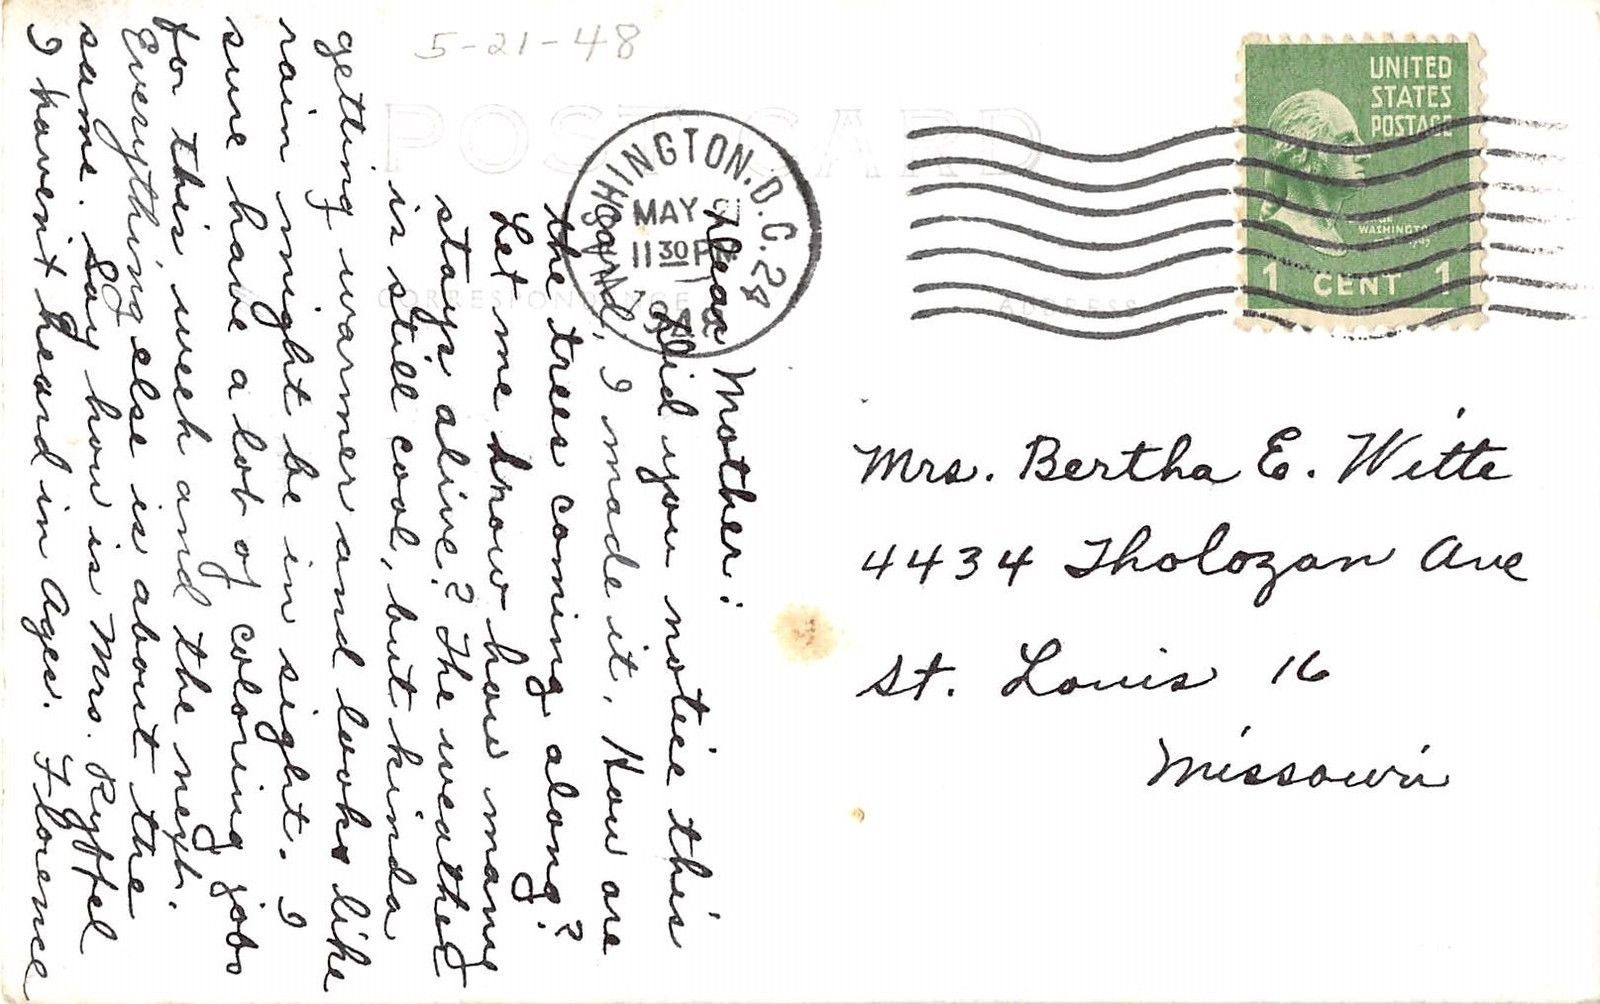 5-21-48
POST CARD
WASHINGTON, D.C. 28
MAY 21
11 30 P
1948
UNITED
STATES
POSTAGE
WASHINGTON
1 CENT 1
CORRESPONDENCE
ADDRESS
Dear Mother:
Did you notice this
card, I made it. How are
the trees coming along?
Let me know how many
stays alive? The weather
is still cool, but kinda
getting warmer and looks like
rain might be in sight. I
sure have a lot of coloring jobs
for this week and the next.
Everything else is about the
same. Say how is Mrs. Ryffel
I haven't heard in Ages. Florence
Mrs. Bertha E. Witte
4434 Tholozan Ave
St. Louis 16
Missouri